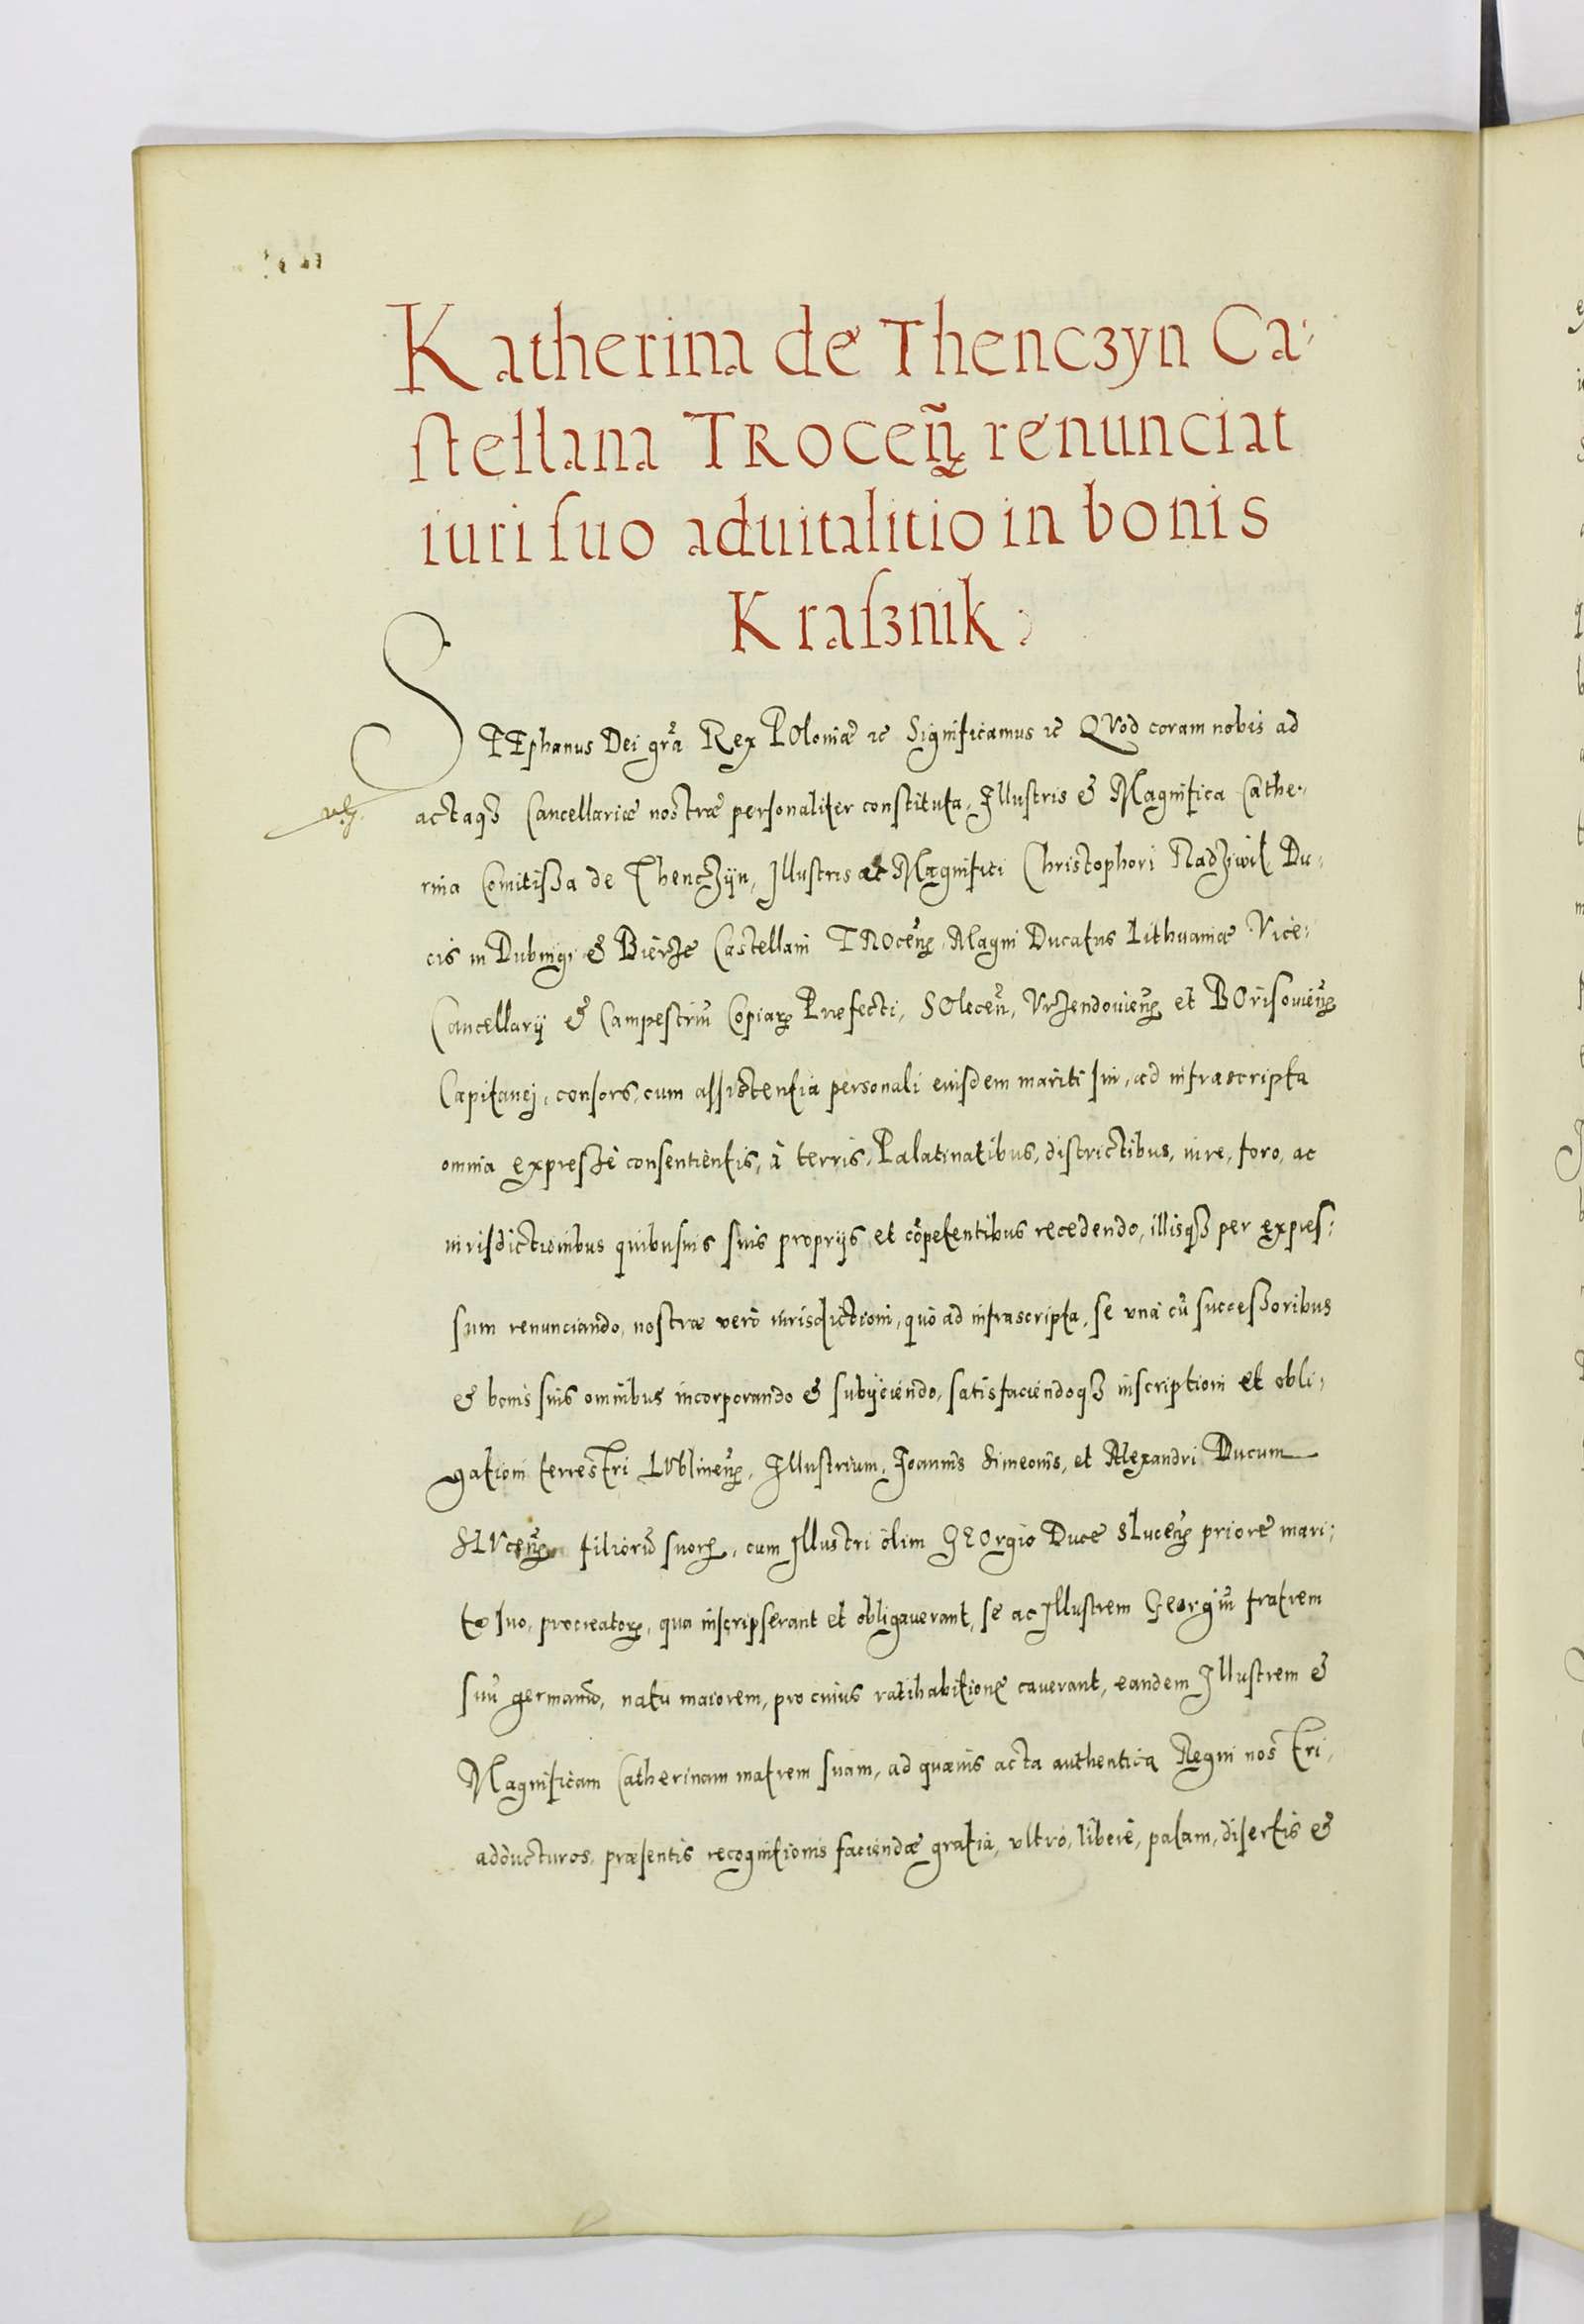 Katherina de Thenczyn Ca-
stellana TROCEñ renunciat
iuri suo aduitalitio in bonis
Krasznik
STEphanus Dei grã Rex POloniæ ꝛc Significamus ꝛc QVod coram nobis ad
actaqȝ Cancellariæ nostræ personaliter constituta, Illustris & Magnifica Cathe-
rina Comitissa de Thenczijn, Illustris ac Magnifici Christophori Radziwil Du-
cis in Dubingi & Bierże Castellani TROceñ, Magni Ducatus Lithuaniæ Vice-
Cancellarij & Campestriũ Copiarꝝ Præfecti, SOleceñ, Vrzendovieñ et BOrisovieñ
Capitanej, consors, cum assistentia personali eiusdem mariti sui, ad infrascripta
omnia expressè consentientis, à terris, Palatinatibus, districtibus, iure, foro, ac
iurisdictionibus quibusuis suis proprijs et cõpetentibus recedendo, illisqȝ per expres-
sum renunciando, nostræ verò iurisdictioni, quò ad infrascripta, se vnà cũ successoribus
& bonis suis omnibus incorporando & subijciendo, satisfaciendoqȝ inscriptioni et obli-
gationi terrestri LVblineñ, Illustrium, Joannis Simeonis, et Alexandri Ducum
SLVceñ filiorũ suorꝝ, cum Illustri olim GEOrgio Duce SLuceñ priore mari-
to suo, procreatorꝝ, qua inscripserant et obligauerant, se ac Illustrem Georgiũ fratrem
suũ germanũ, natu maiorem, pro cuius ratihabitione cauerant, eandem Illustrem &
Magnificam Catherinam matrem suam, ad quæuis acta authentica Regni nostri,
adducturos, præsentis recognitionis faciendæ gratia, vltrò, liberè, palam, disertis &